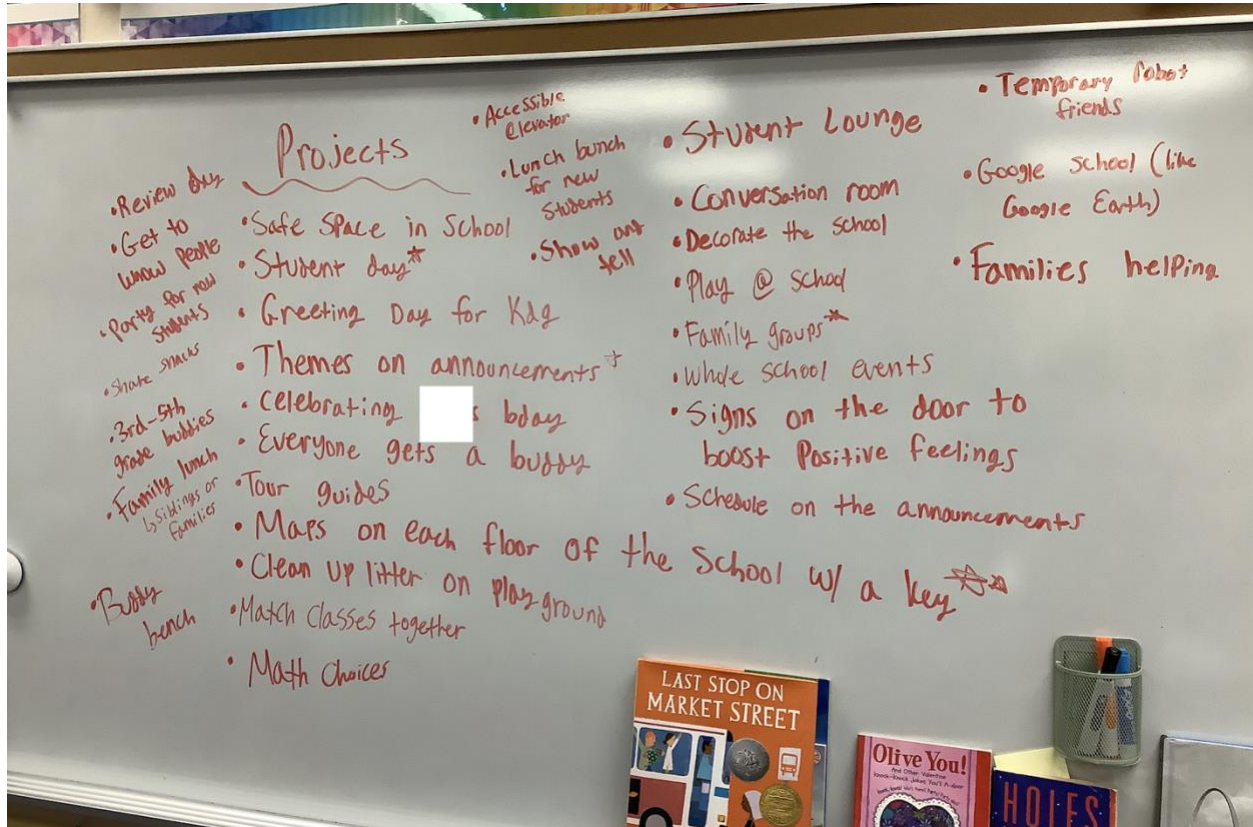 Projects
• Review day
• Get to
know people
• Party for new
students
• Share snacks
• 3rd-5th
grade buddies
• Family lunch
↳ siblings or
families
• Buddy
bench
• Safe space in school
• Student day*
• Greeting Day for Kdg
• Themes on announcements*
• Celebrating s bday
• Everyone gets a buddy
• Tour guides
• Maps on each floor of the school w/ a key**
• Clean up litter on playground
• Match classes together
• Math Choices
• Accessible
elevator
• Lunch bunch
for new
students
• Show and
tell
• Student Lounge
• Conversation room
• Decorate the school
• Play @ school
• Family groups*
• Whole school events
• Signs on the door to
boost Positive feelings
• Schedule on the announcements
• Temporary robot
friends
• Google school (like
Google Earth)
• Families helping
LAST STOP ON
MARKET STREET
Olive You!
And Other Valentine
Knock-Knock Jokes You'll A-door
HOLES